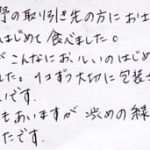 野の取引き先の方にお
はじめて食べました。
がこんなにおいしいのはじめ
した。1コずつ大切に包装さ
いです。
もあいますが 渋めの緑
たです。